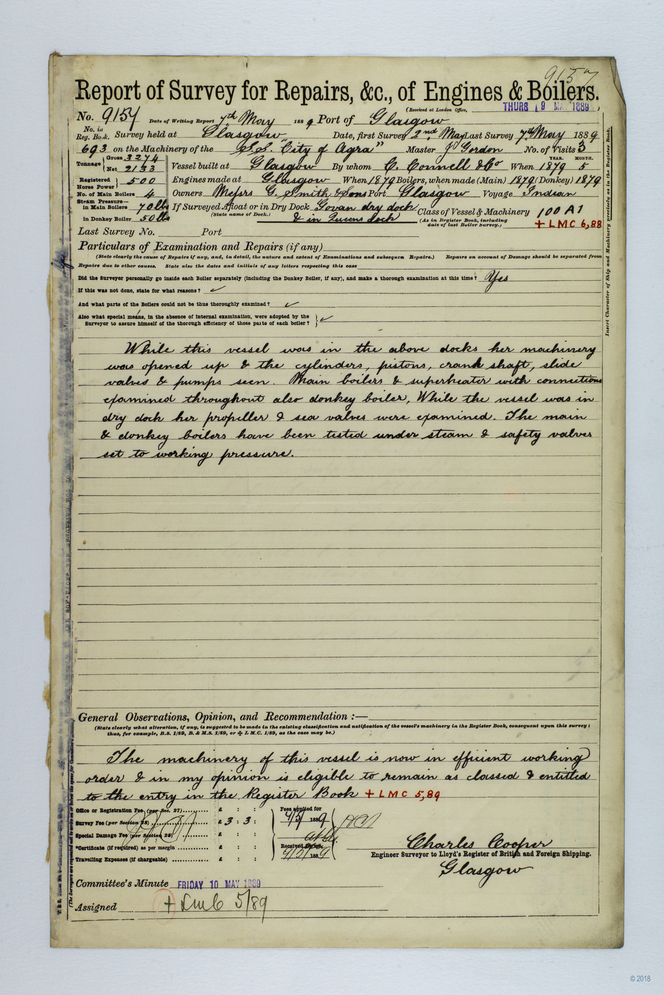 9157
Report of Survey for Repairs, &c., of Engines & Boilers.
(Received at London Office, THURS 9 MAY 1889
No. 9154 Date of Writing Report 7th May 1889 Port of Glasgow
No. in Reg. Book. Survey held at Glasgow Date, first Survey 2nd May Last Survey 7th May 1889
693 on the Machinery of the "S.S. City of Agra" Master J. Gordon No. of Visits 3
Tonnage Gross 3274 Net 2133 Vessel built at Glasgow By whom C. Connell & Co When 1879 YEAR. MONTH. 5
Registered Horse Power 500 Engines made at Glasgow When 1879 Boilers, when made (Main) 1879 (Donkey) 1879
No. of Main Boilers Owners Messrs G. Smith & Sons Port Glasgow Voyage Indian
Steam Pressure in Main Boilers 70 lbs If Surveyed Afloat or in Dry Dock Govan dry dock
(State name of Dock.) & in Queens dock Class of Vessel & Machinery 100 A1
in Donkey Boiler 50 lbs (As in Register Book, including date of last Boiler survey.) + LMC 6,88
Last Survey No. Port
Particulars of Examination and Repairs (if any)
(State clearly the cause of Repairs if any, and, in detail, the nature and extent of Examinations and subsequent Repairs.) Repairs on account of Damage should be separated from
Repairs due to other causes. State also the dates and initials of any letters respecting this case
Did the Surveyor personally go inside each Boiler separately (including the Donkey Boiler, if any), and make a thorough examination at this time? Yes
If this was not done, state for what reasons? ✓
And what parts of the Boilers could not be thoroughly examined? ✓
Also what special means, in the absence of internal examination, were adopted by the
Surveyor to assure himself of the thorough efficiency of those parts of each boiler? ✓
While this vessel was in the above docks her machinery
was opened up & the cylinders, pistons, crank shaft, slide
valves & pumps seen. Main boilers & superheater with connections
examined throughout also donkey boiler, While the vessel was in
dry dock her propeller & sea valves were examined. The main
& donkey boilers have been tested under steam & safety valves
set to working pressure.
General Observations, Opinion, and Recommendation :—
(State clearly what alteration, if any, is suggested to be made in the existing classification and notification of the vessel's machinery in the Register Book, consequent upon this survey;
thus, for example, B.S. 1/89, B. & M.S. 1/89, or L.M.C. 1/89, as the case may be.)
The machinery of this vessel is now in efficient working
order & in my opinion is eligible to remain as classed & entitled
to the entry in the Register Book + LMC 5,89
Office or Registration Fee (per Sec. 27) £ : : Fees applied for
Survey Fee (per Section 28) £ 3 : 3 : 1889
Special Damage Fee (per Section 28) £ : :
*Certificate (if required) as per margin £ : : Received by me,
Travelling Expenses (if chargeable) £ : : 1889
Charles Cooper
Engineer Surveyor to Lloyd's Register of British and Foreign Shipping.
Glasgow
Committee's Minute FRIDAY 10 MAY 1889
Assigned + LMC 5/89
Insert Character of Ship and Machinery precisely as in the Register Book.
© 2018